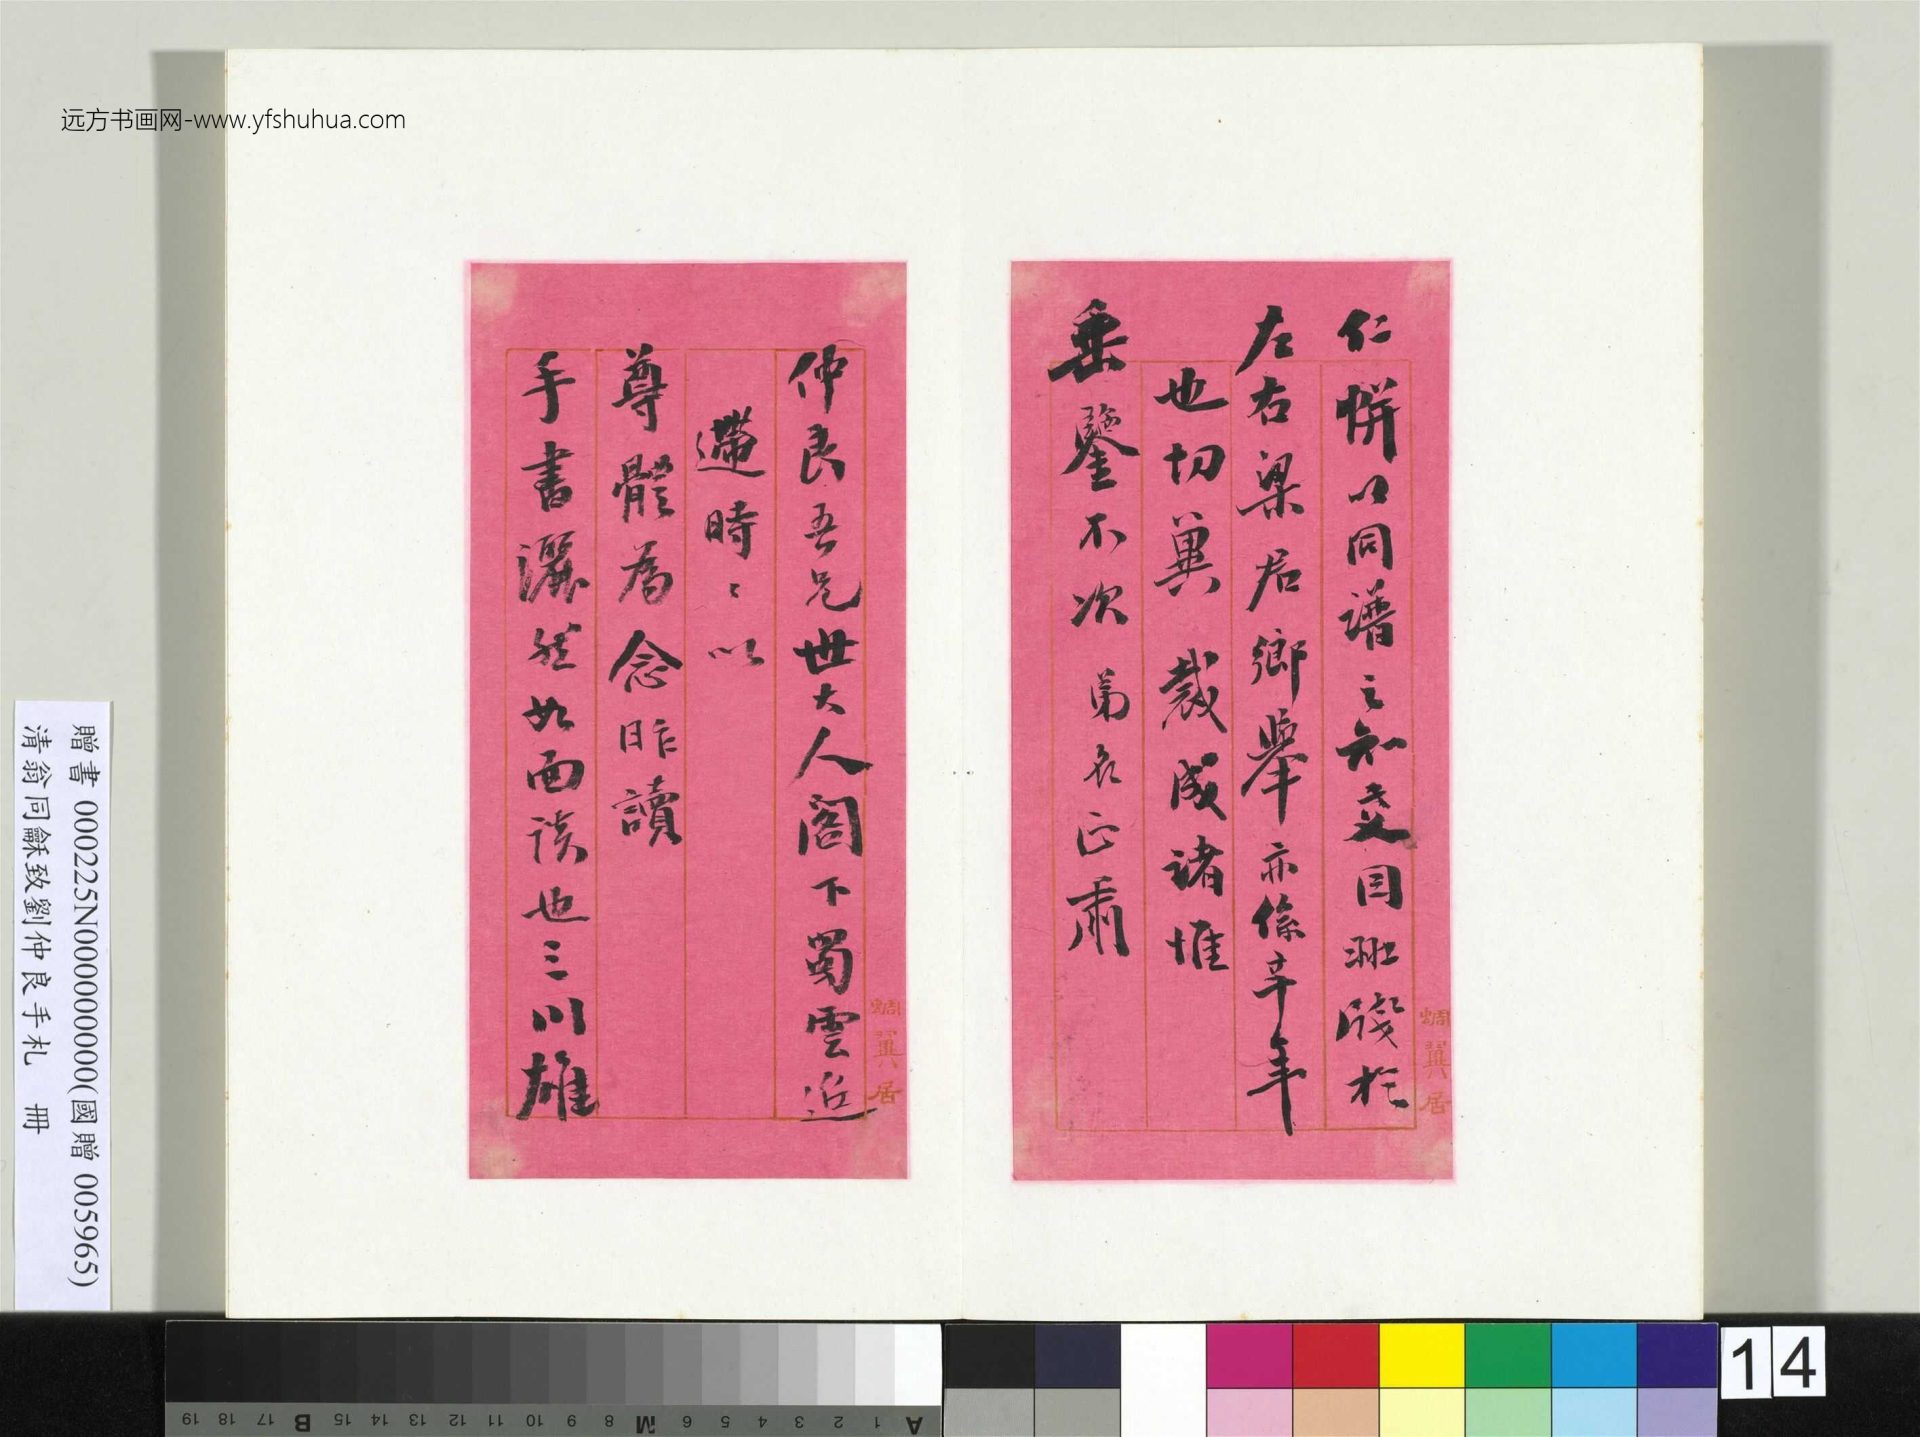 远方书画网-www.yfshuhua.com
仁帡以同譜之知交目班階於
左右梁居鄉舉亦係辛年
也切冀 裁成諸惟
垂鑒不次 弟名正肅
蜩翼居
仲良吾兄世大人閣下蜀雲迢
遰時時以
尊體為念昨讀
手書灑然如面談也三川雄
蜩翼居
贈書 000225N000000000(國贈 005965)
清翁同龢致劉仲良手札 冊
14
A 1 2 3 4 5 6 M 8 9 10 11 12 13 14 15 B 17 18 19